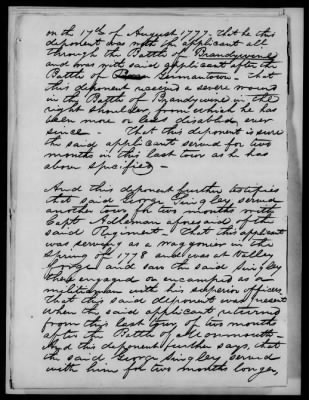 on the 17th of August 1777. that he this
deponent was with the applicant all
through the Battle of Brandywine
and was with said applicant after the
Battle of Germantown. That
this deponent received a severe wound
in the Battle of Brandywine in the
right shoulder from which he has
been more or less disabled ever
since - That this deponent is sure
the said applicant served for two
months in this last tour as he has
above specified -
And this deponent further testifies
that said George Singley served
another tour for two months with
Capt Adleman aforesaid of the
said Regiment - that this applicant
was serving as a waggoner in the
Spring of 1778 and was at Valley
Forge and saw the said Singley
there engaged or encamped as a
militiaman with his superior officers
That this said deponent was present
when the said applicant returned
from this last tour of two months
after the Battle of Monmouth.
And this deponent further says, that
the said George Singley served
with him for two months longer,